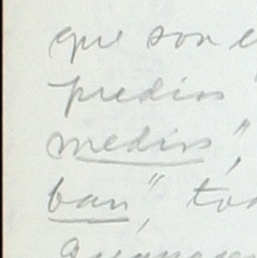 que son e
predios
medios",
ban", to